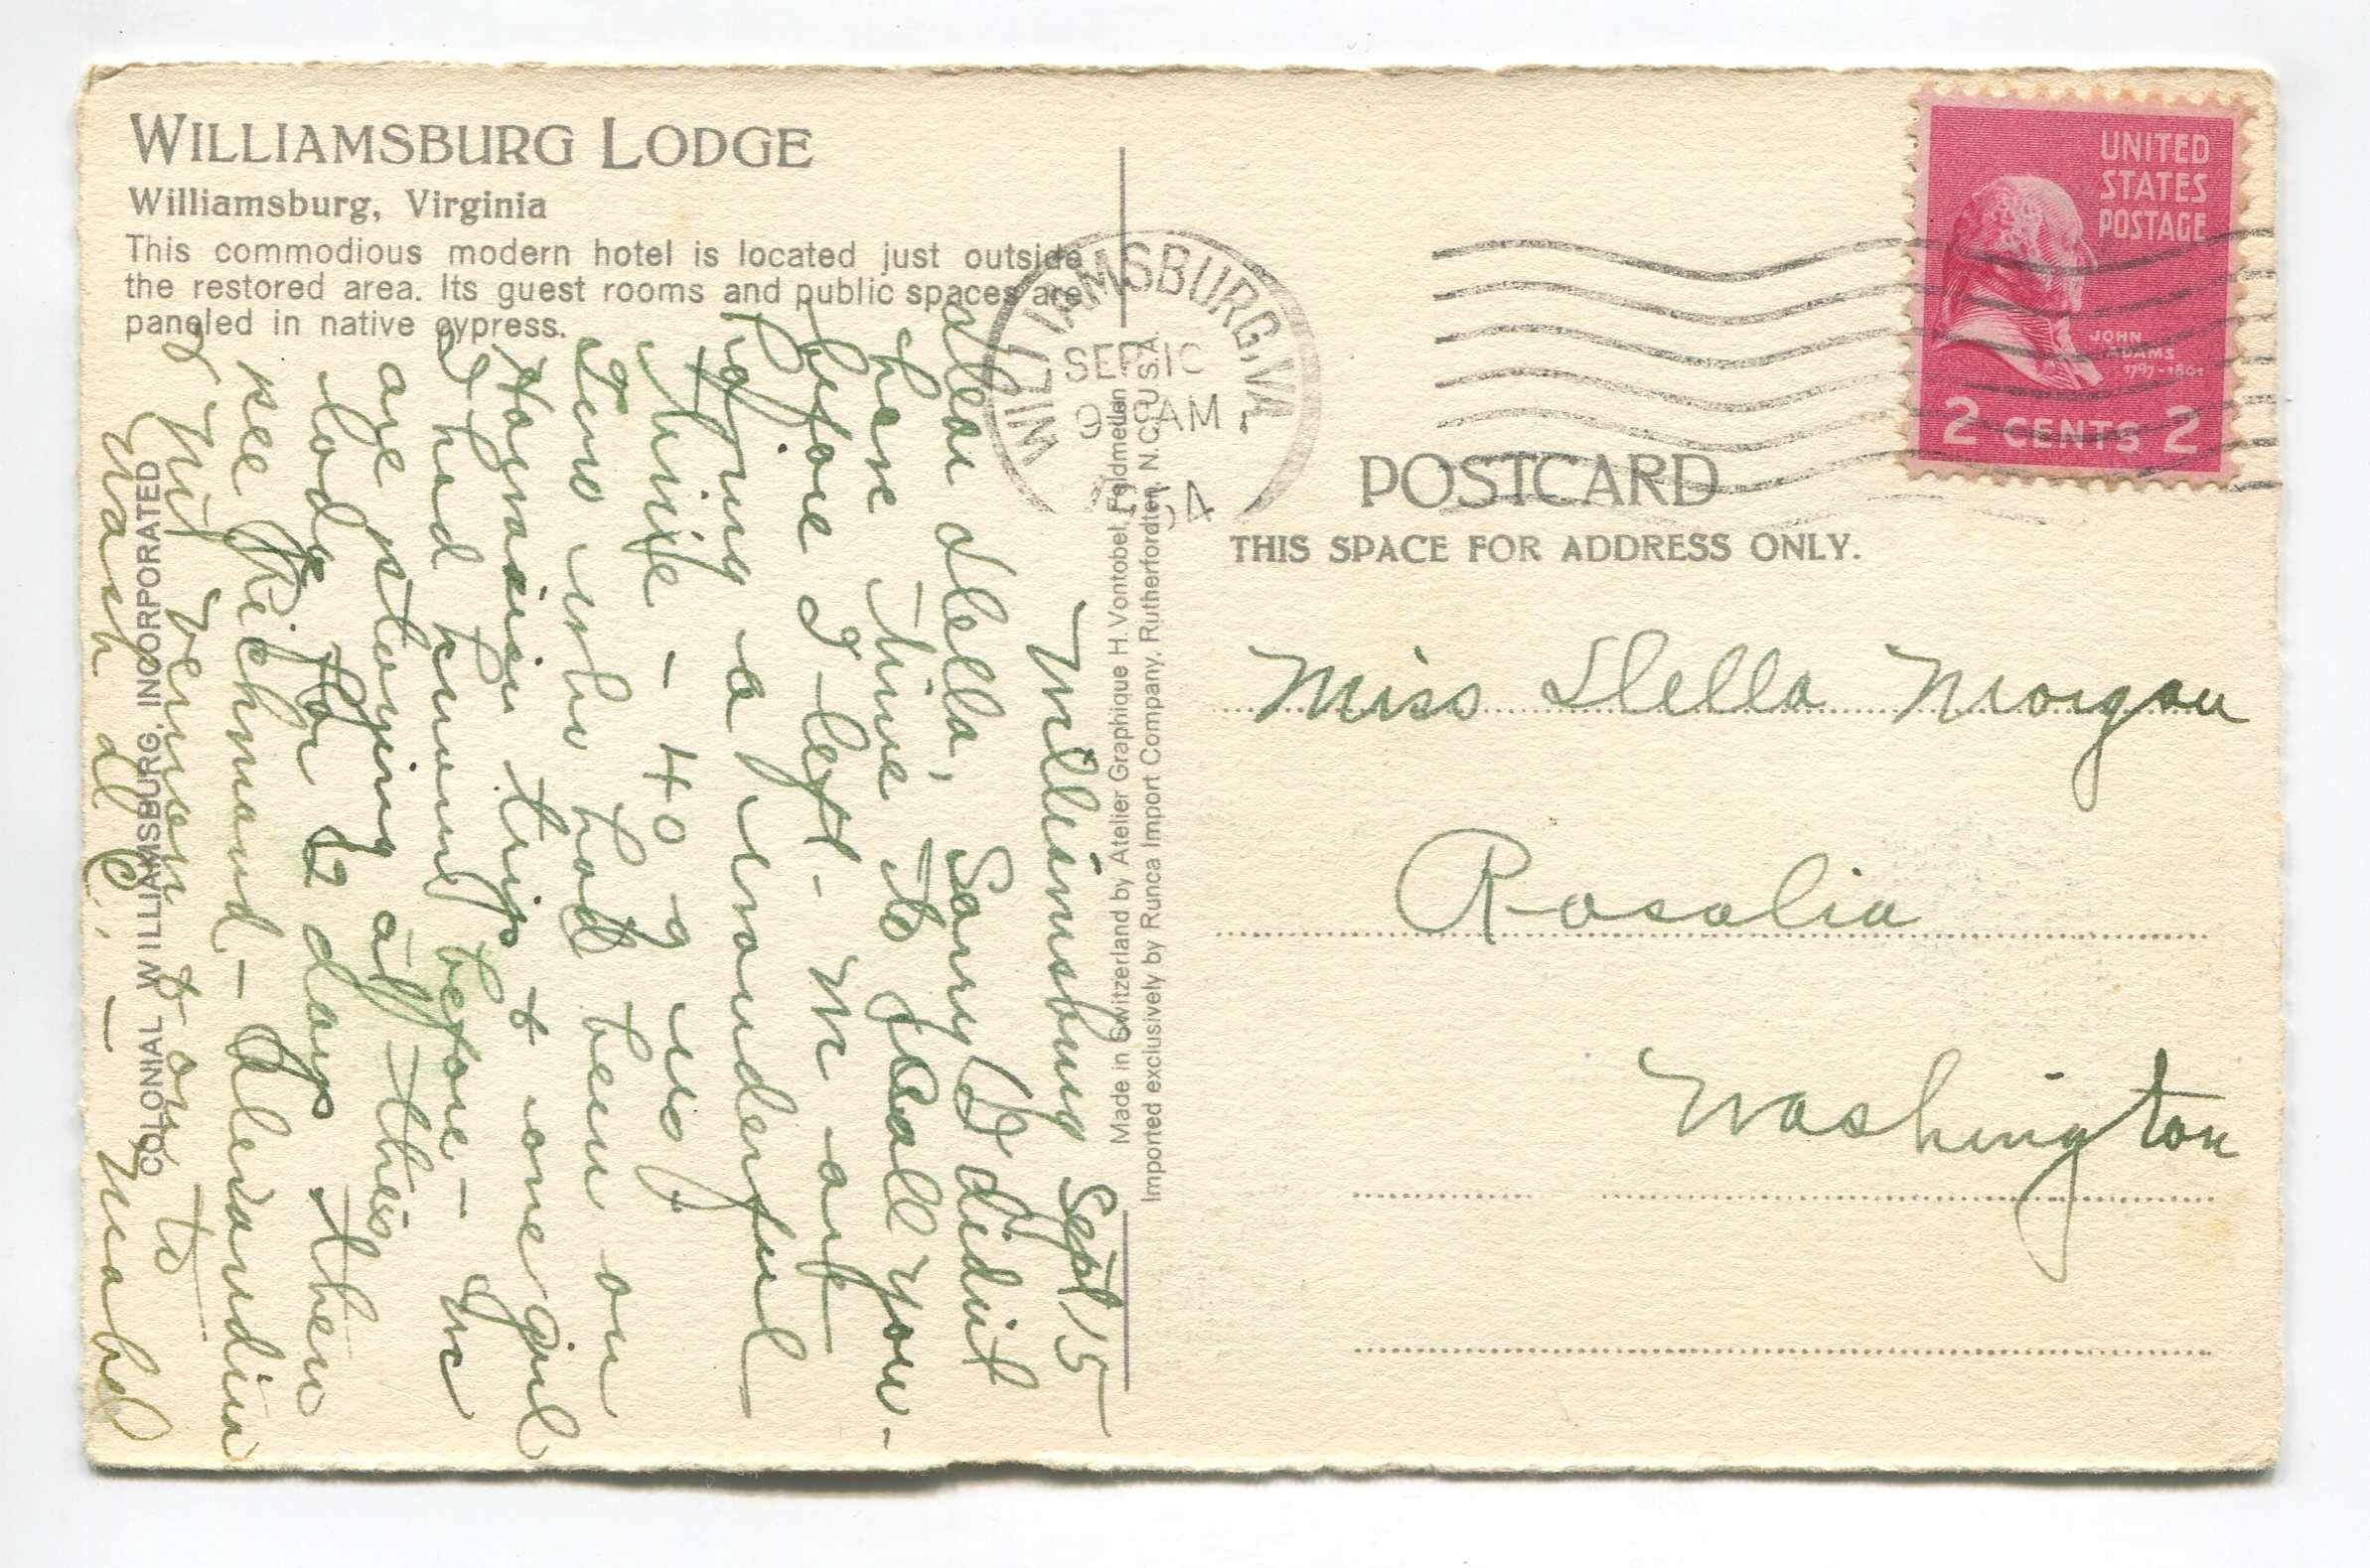 WILLIAMSBURG LODGE
Williamsburg, Virginia
This commodious modern hotel is located just outside
the restored area. Its guest rooms and public spaces are
paneled in native cypress.
WILLIAMSBURG, VA.
SEP 16
9 AM
1954
UNITED
STATES
POSTAGE
JOHN
ADAMS
1797-1801
2 CENTS 2
POSTCARD
THIS SPACE FOR ADDRESS ONLY.
Miss Stella Morgan
Rosalia
Washington
Made in Switzerland by Atelier Graphique H. Vontobel, Feldmeilen
Imported exclusively by Runca Import Company, Rutherfordton, N.C., U.S.A.
Williamsburg Sept 15
Dear Stella, Sorry I didnt
have time to call you -
before I left - M and I
having a wonderful
time - 40 of us
Two who had been on
Hawaiian trip & one girl
I had known before - We
are staying at this
lodge for 2 days then
see Richmond - Alexandria
& Mt Vernon & on to
Wash D.C. - Mabel
COLONIAL WILLIAMSBURG, INCORPORATED